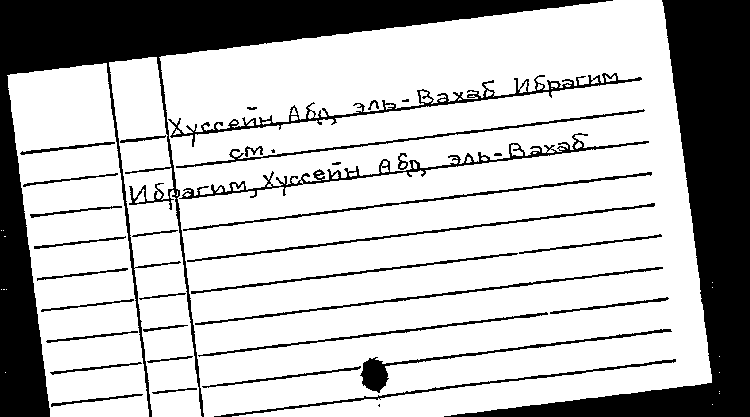 Хуссейн, Абд, эль-Вахаб Ибрагим
см.
Ибрагим, Хуссейн Абд, эль-Вахаб